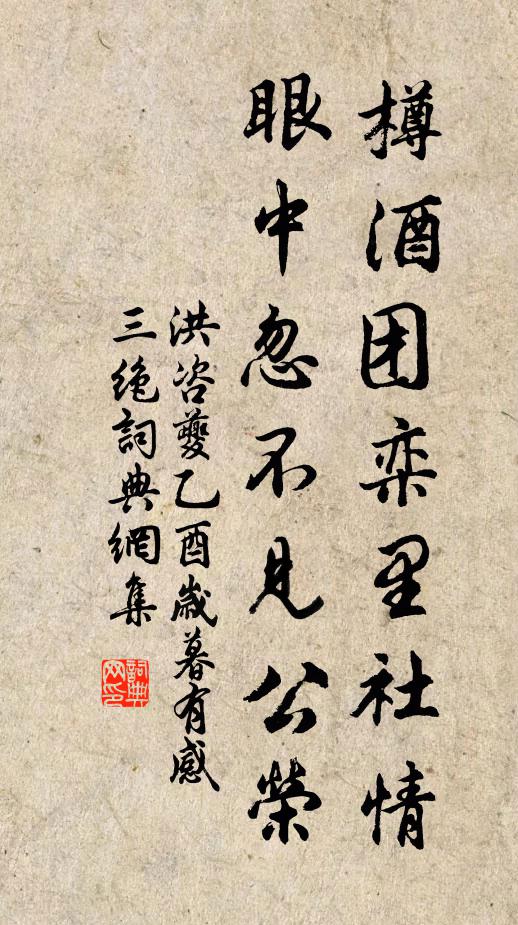 樽酒团栾里社情
眼中忽不见公荣
洪咨夔乙酉岁暮有感
三绝詞典網集
詞典网印